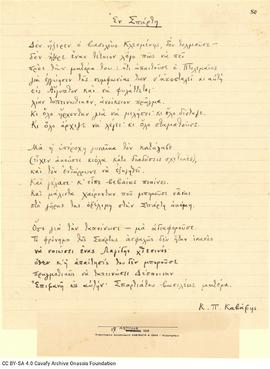 80
Ἐν Σπάρτῃ
Δὲν ἤξερεν ὁ βασιλεὺς Κλεομένης, δὲν τολμοῦσε—
δὲν ἤξερε ἕναν τέτοιον λόγο πῶς νὰ πεῖ
πρὸς τὴν μητέρα του: ὅτι ἀπαιτοῦσε ὁ Πτολεμαῖος
γιὰ ἐγγύησιν τῆς συμφωνίας των ν' ἀποσταλεῖ κι αὐτὴ
εἰς Αἴγυπτον καὶ νὰ φυλάττεται·
λίαν ταπεινωτικόν, ἀνοίκειον πρᾶγμα.
Κι ὅλο ἤρχονταν γιὰ νὰ μιλήσει· κι ὅλο δίσταζε.
Κι ὅλο ἄρχιζε νὰ λέγει· κι ὅλο σταματοῦσε.
Μὰ ἡ ὑπέροχη γυναῖκα τὸν κατάλαβε
(εἶχεν ἀκούσει κιόλα κάτι διαδόσεις σχετικές),
καὶ τὸν ἐνθάρρυνε νὰ ἐξηγηθεῖ.
Καὶ γέλασε· κ' εἶπε βεβαίως πιαίνει.
Καὶ μάλιστα χαίρονταν ποὺ μποροῦσε νἆναι
στὸ γῆρας της ὠφέλιμη στὴν Σπάρτη ἀκόμη.
Ὅσο γιὰ τὴν ταπείνωσι— μὰ ἀδιαφοροῦσε.
Τὸ φρόνημα τῆς Σπάρτης ἀσφαλῶς δὲν ἦταν ἱκανὸς
νὰ νοιώσει ἕνας Λαγίδης χθεσινός·
ὅθεν κ' ἡ ἀπαίτησίς του δὲν μποροῦσε
πραγματικῶς νὰ ταπεινώσει Δέσποιναν
Ἐπιφανῆ ὡς αὐτήν· Σπαρτιάτου βασιλέως μητέρα.
Κ. Π. Καβάφης
CC BY-SA 4.0 Cavafy Archive Onassis Foundation